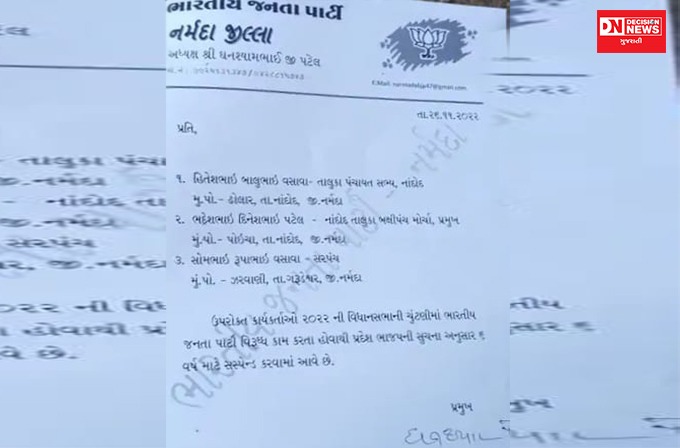 ભારતીય જનતા પાર્ટી
નર્મદા જીલ્લા
અધ્યક્ષ શ્રી ઘનશ્યામભાઈ જી પટેલ
DN DECISION NEWS
ગુજરાતી
તા.૨૯.૧૧.૨૦૨૨
પ્રતિ,
૧. હિતેશભાઇ બાલુભાઇ વસાવા- તાલુકા પંચાયત સભ્ય, નાંદોદ
મુ.પો.- ઢોલાર, તા.નાંદોદ, જી.નર્મદા
૨. ભદ્રેશભાઇ દિનેશભાઇ પટેલ - નાંદોદ તાલુકા બક્ષીપંચ મોર્ચા, પ્રમુખ
મું.પો. - પોઇચા, તા.નાંદોદ, જી.નર્મદા
૩. સોમભાઇ રૂપાભાઇ વસાવા - સરપંચ
મું.પો. - ઝરવાણી, તા.ગરૂડેશ્વર, જી.નર્મદા
ઉપરોક્ત કાર્યકર્તાઓ ૨૦૨૨ ની વિધાનસભાની ચુંટણીમાં ભારતીય
જનતા પાર્ટી વિરૂધ્ધ કામ કરતા હોવાથી પ્રદેશ ભાજપની સુચના અનુસાર ૬
વર્ષ માટે સસ્પેન્ડ કરવામાં આવે છે.
પ્રમુખ